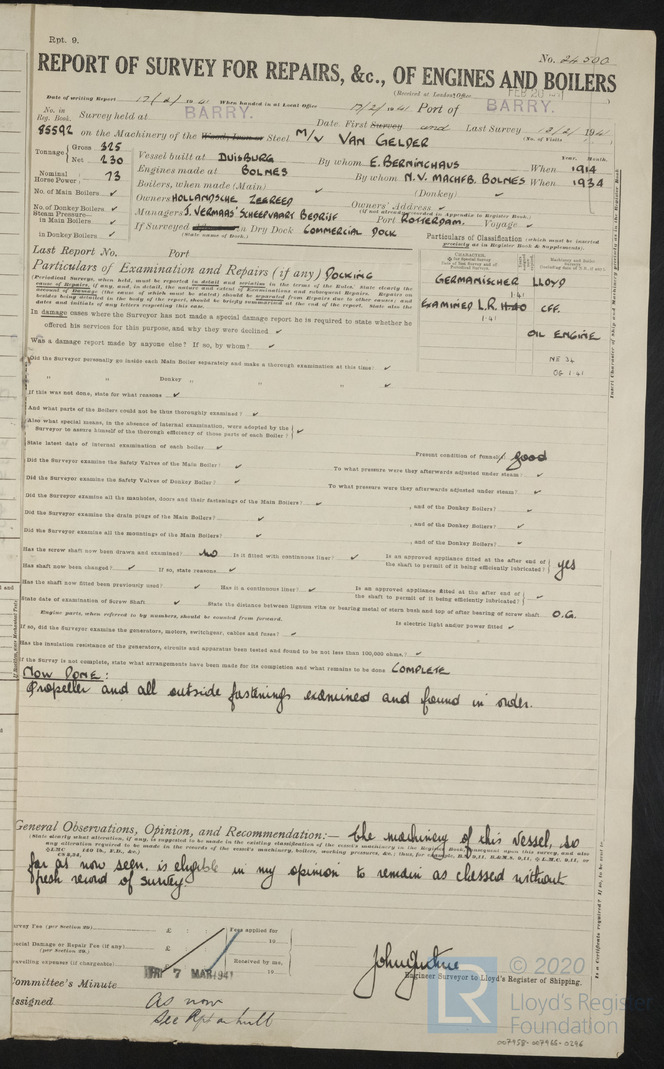 Rpt. 9.
No. 24500
REPORT OF SURVEY FOR REPAIRS, &c., OF ENGINES AND BOILERS
(Received at London Office FEB 20 1941
Date of writing Report 17/2/ 1941 When handed in at Local Office 17/2/1941 Port of BARRY.
No. in Reg. Book. Survey held at BARRY. Date. First Survey and Last Survey 13/2/ 1941
(No. of Visits
85592 on the Machinery of the Wood, Iron or Steel M/V VAN GELDER
Tonnage Gross 325
Net 230
Vessel built at DUISBURG By whom E. BERNINGHAUS When 1914
Year. Month.
Nominal Horse Power 73
Engines made at BOLNES By whom N.V. MACHFB. BOLNES When 1934
No. of Main Boilers ✓
Boilers, when made (Main) ✓ (Donkey) ✓
No. of Donkey Boilers ✓
Owners HOLLANDSCHE ZEEREED Owners' Address ✓
(if not already recorded in Appendix to Register Book.)
Steam Pressure in Main Boilers ✓
Managers J. VERMAAS' SCHEEPVAART BEDRIJF Port ROTTERDAM. Voyage ✓
in Donkey Boilers ✓
If Surveyed in Dry Dock COMMERCIAL DOCK
(State name of Dock.)
Particulars of Classification (which must be inserted precisely as in Register Book & Supplements).
Last Report No. Port
Particulars of Examination and Repairs (if any) DOCKING
GERMANISCHER LLOYD
1.41
EXAMINED L.R. OFF.
1.41
OIL ENGINE
NE 34
OG 1.41
In damage cases where the Surveyor has not made a special damage report he is required to state whether he
offered his services for this purpose, and why they were declined ✓
Was a damage report made by anyone else? If so, by whom? ✓
Did the Surveyor personally go inside each Main Boiler separately and make a thorough examination at this time? ✓
" " Donkey " " " ✓
If this was not done, state for what reasons ✓
And what parts of the Boilers could not be thus thoroughly examined? ✓
Also what special means, in the absence of internal examination, were adopted by the
Surveyor to assure himself of the thorough efficiency of those parts of each Boiler? ✓
State latest date of internal examination of each boiler ✓ Present condition of funnel(s) good
Did the Surveyor examine the Safety Valves of the Main Boiler? ✓ To what pressure were they afterwards adjusted under steam? ✓
Did the Surveyor examine the Safety Valves of Donkey Boiler? ✓ To what pressure were they afterwards adjusted under steam? ✓
Did the Surveyor examine all the manholes, doors and their fastenings of the Main Boilers? ✓ , and of the Donkey Boilers? ✓
Did the Surveyor examine the drain plugs of the Main Boilers? ✓ , and of the Donkey Boilers? ✓
Did the Surveyor examine all the mountings of the Main Boilers? ✓ , and of the Donkey Boilers? ✓
Has the screw shaft now been drawn and examined? no Is it fitted with continuous liner? ✓ Is an approved appliance fitted at the after end of the shaft to permit of it being efficiently lubricated? yes
Has shaft now been changed? ✓ If so, state reasons ✓
Has the shaft now fitted been previously used? ✓ Has it a continuous liner? ✓ Is an approved appliance fitted at the after end of the shaft to permit of it being efficiently lubricated? ✓
State date of examination of Screw Shaft ✓ State the distance between lignum vitæ or bearing metal of stern bush and top of after bearing of screw shaft O.G.
Engine parts, when referred to by numbers, should be counted from forward. Is electric light and/or power fitted ✓
If so, did the Surveyor examine the generators, motors, switchgear, cables and fuses? ✓
Has the insulation resistance of the generators, circuits and apparatus been tested and found to be not less than 100,000 ohms? ✓
If the Survey is not complete, state what arrangements have been made for its completion and what remains to be done COMPLETE
NOW DONE:
Propeller and all outside fastenings examined and found in order.
General Observations, Opinion, and Recommendation:— The machinery of this Vessel, so
far as now seen, is eligible in my opinion to remain as classed without
fresh record of survey.
Survey Fee (per Section 29) £ Fees applied for
Special Damage or Repair Fee (if any) £ 19
(per Section 29.)
Travelling expenses (if chargeable) £ Received by me,
19
FRI 7 MAR 1941
Engineer Surveyor to Lloyd's Register of Shipping.
Committee's Minute
Assigned As now
See Rpt on hull
© 2020
LR
Lloyd's Register
Foundation
007958-007966-0296